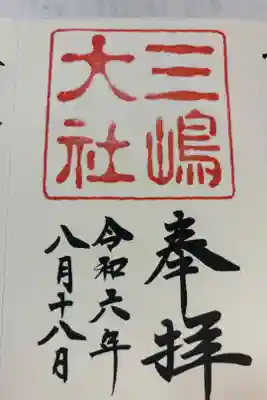 三嶋
大社
奉拝
令和六年
八月十八日